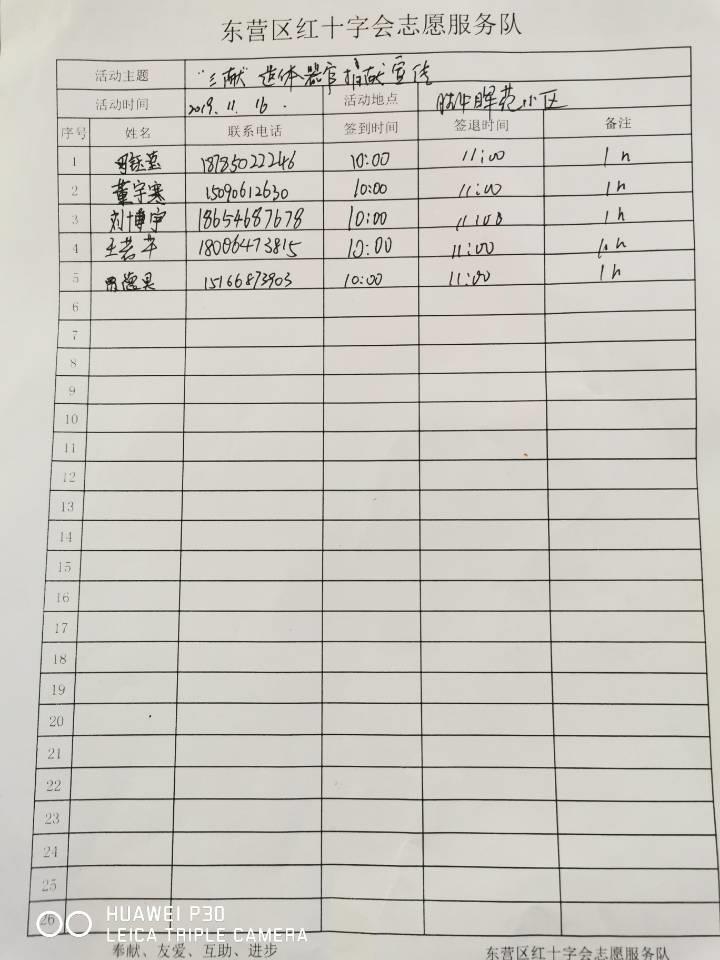 东营区红十字会志愿服务队
活动主题 "三献" 遗体器官捐献宣传
活动时间 2019.11.16. 活动地点 晖苑小区
序号 姓名 联系电话 签到时间 签退时间 备注
1 18785022246 10:00 11:00 1h
2 董宇寒 15090612630 10:00 11:00 1h
3 刘博宇 18654687678 10:00 11:00 1h
4 王若芊 18006473815 10:00 11:00 1h
5 15166873903 10:00 11:00 1h
6
7
8
9
10
11
12
13
14
15
16
17
18
19
20
21
22
23
24
25
26
HUAWEI P30
LEICA TRIPLE CAMERA
奉献、友爱、互助、进步 东营区红十字会志愿服务队